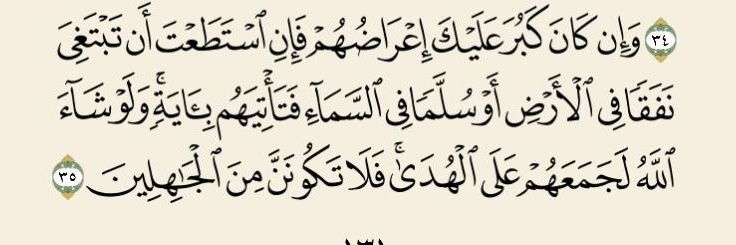 ٣٤ وَإِن كَانَ كَبُرَ عَلَيْكَ إِعْرَاضُهُمْ فَإِنِ ٱسْتَطَعْتَ أَن تَبْتَغِىَ
نَفَقًا فِى ٱلْأَرْضِ أَوْ سُلَّمًا فِى ٱلسَّمَآءِ فَتَأْتِيَهُم بِـَٔايَةٍۚ وَلَوْ شَآءَ
ٱللَّهُ لَجَمَعَهُمْ عَلَى ٱلْهُدَىٰۚ فَلَا تَكُونَنَّ مِنَ ٱلْجَٰهِلِينَ ٣٥